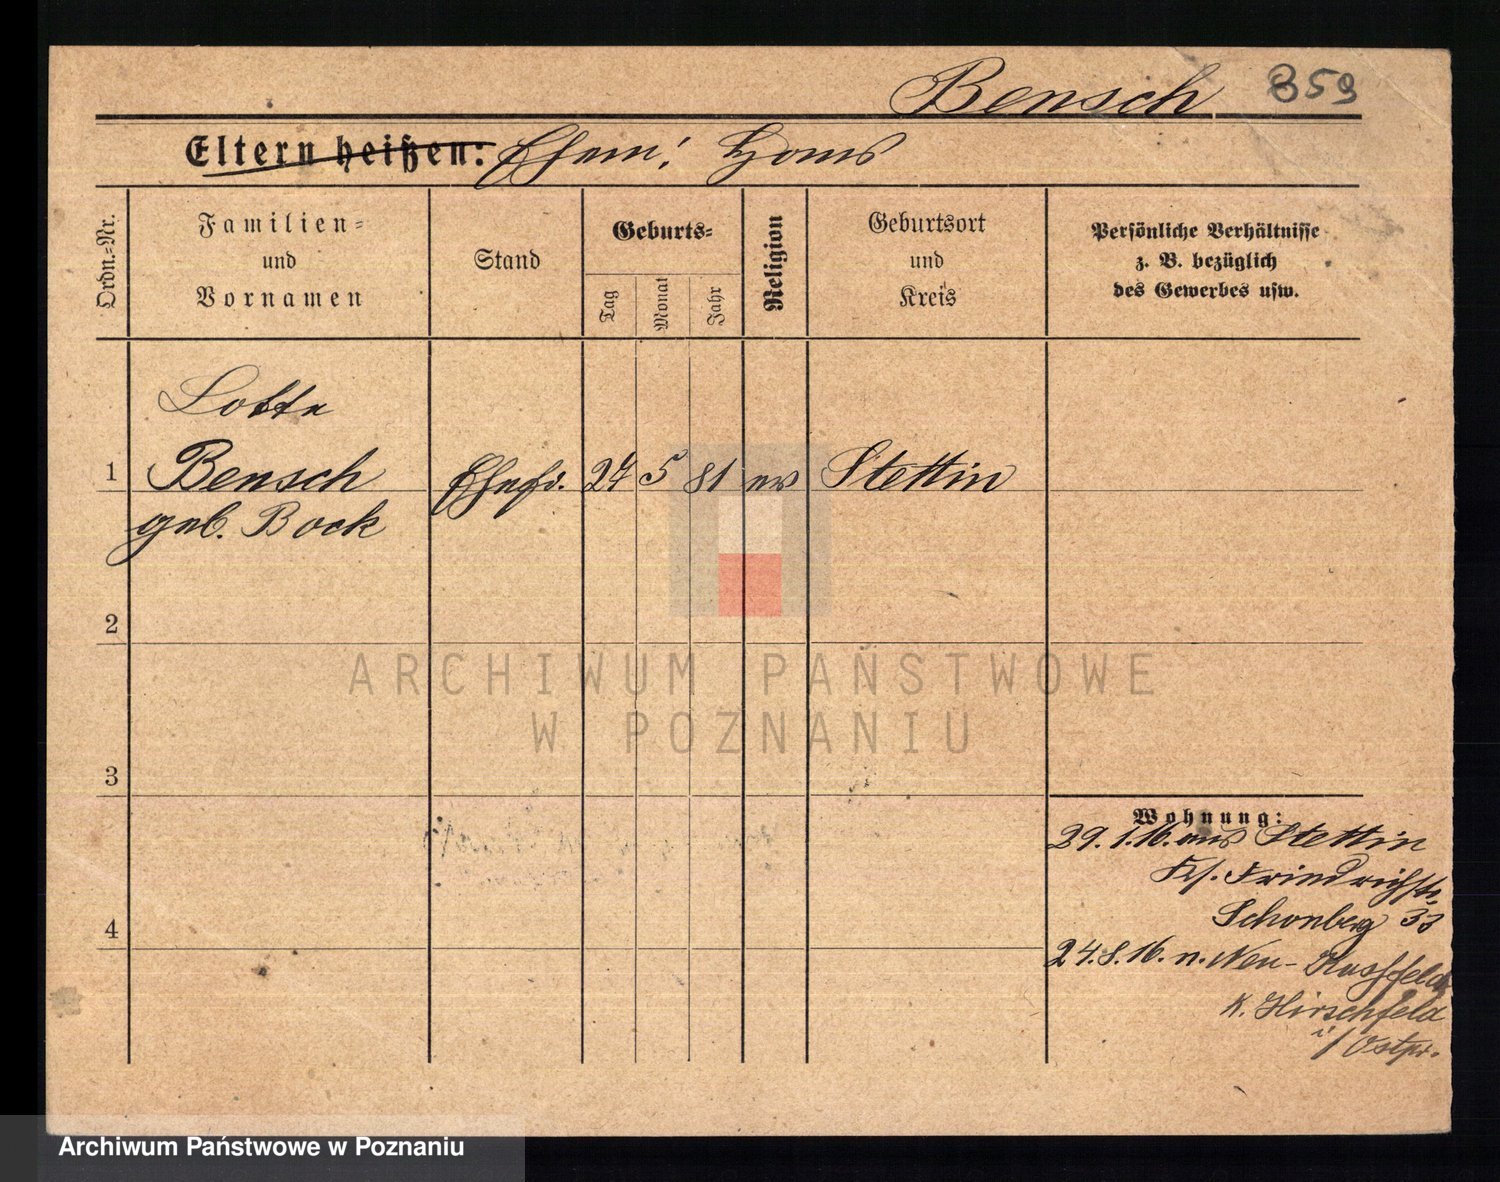 Bensch 359
Eltern heißen: Ehem: Hans
Ordn.-Nr.
Familien-
und
Vornamen
Stand
Geburts-
Tag
Monat
Jahr
Religion
Geburtsort
und
Kreis
Persönliche Verhältnisse
z. B. bezüglich
des Gewerbes usw.
Lotte
1 Bensch Ehefr. 24 5 81 ev Stettin
geb. Bock
2
ARCHIWUM PAŃSTWOWE
W POZNANIU
3
Wohnung:
29. 1. 16. aus Stettin
Schönberg 33
4
24. 8. 16. n. Neu-
K. Hirschfeld
i/Ostpr.
Archiwum Państwowe w Poznaniu